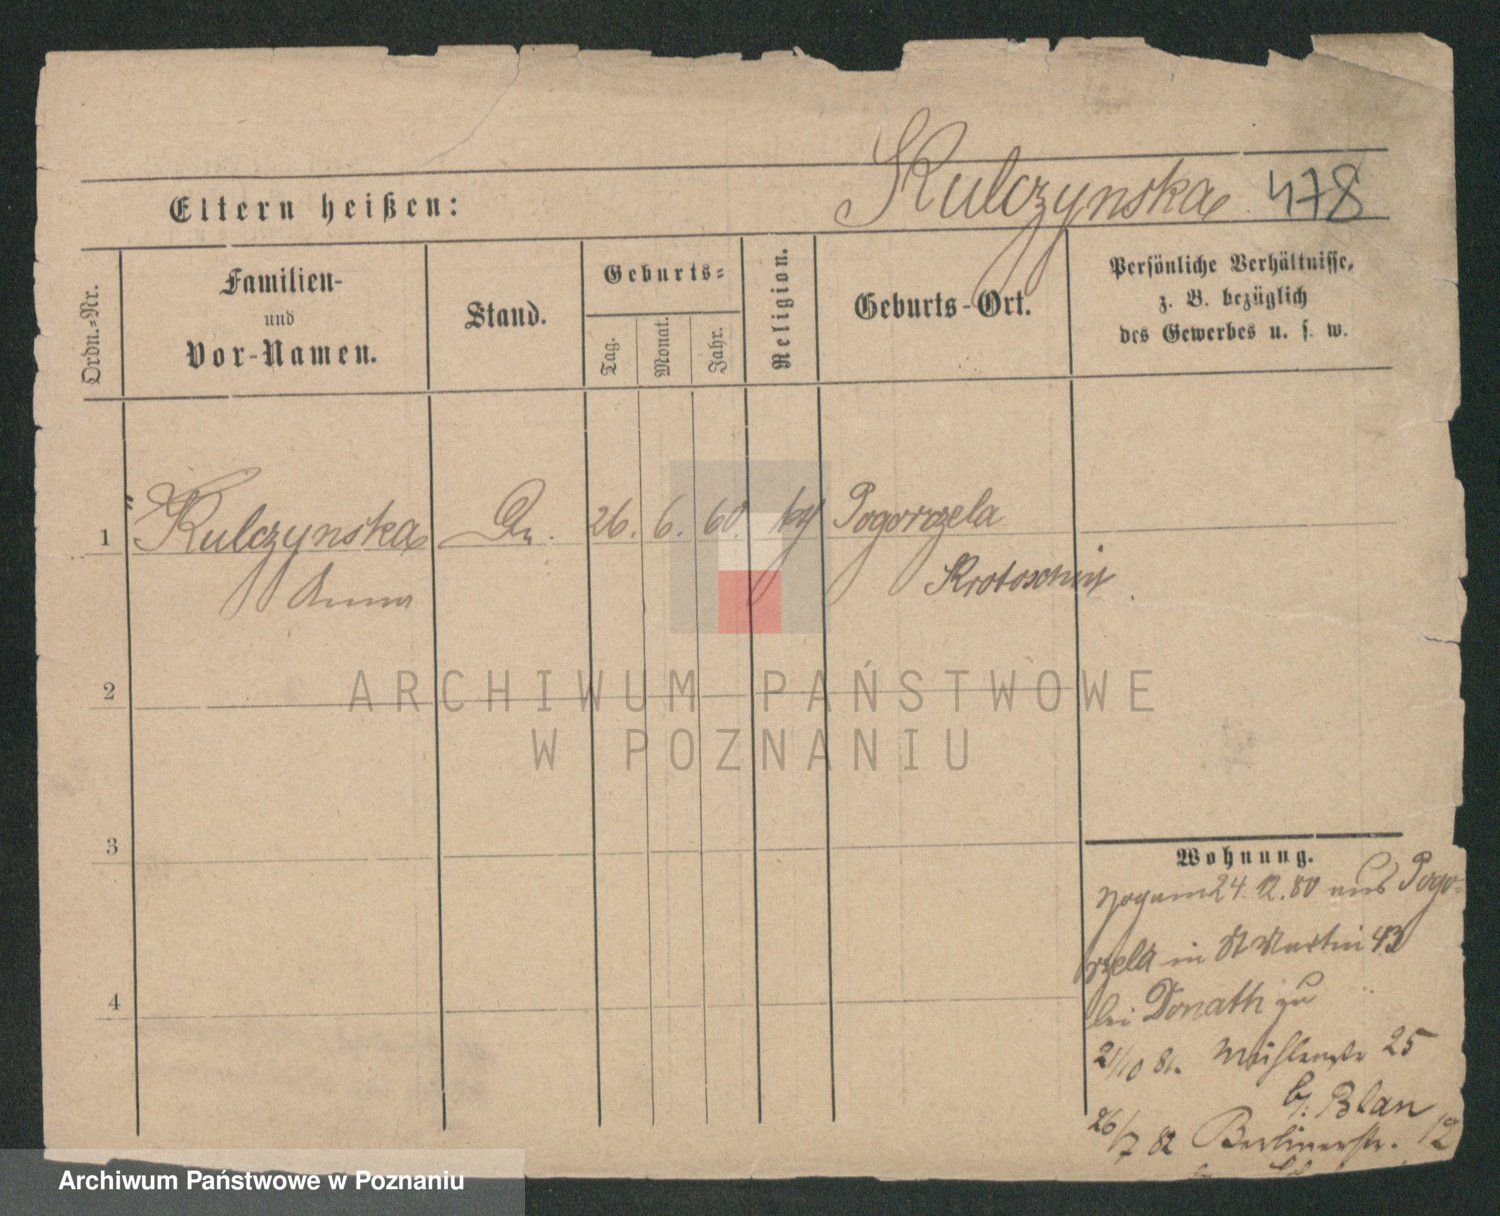 Kulczynska 478
Eltern heißen:
Ordn.=Nr.
Familien-
und
Vor-Namen.
Stand.
Geburts=
Tag.
Monat.
Jahr.
Religion.
Geburts-Ort.
Persönliche Verhältnisse,
z. B. bezüglich
des Gewerbes u. s. w.
1 Kulczynska 26. 6. 60. Pogorzela
Anna Krotoschin
2
ARCHIWUM PAŃSTWOWE
W POZNANIU
3
Wohnung.
24.12.80 aus Pogo=
rzela in St Martin 43
bei Donath zu
21/10 81. Mühlenstr 25
b/. Blan
26/7 82 Berlinerstr. 12
4
Archiwum Państwowe w Poznaniu